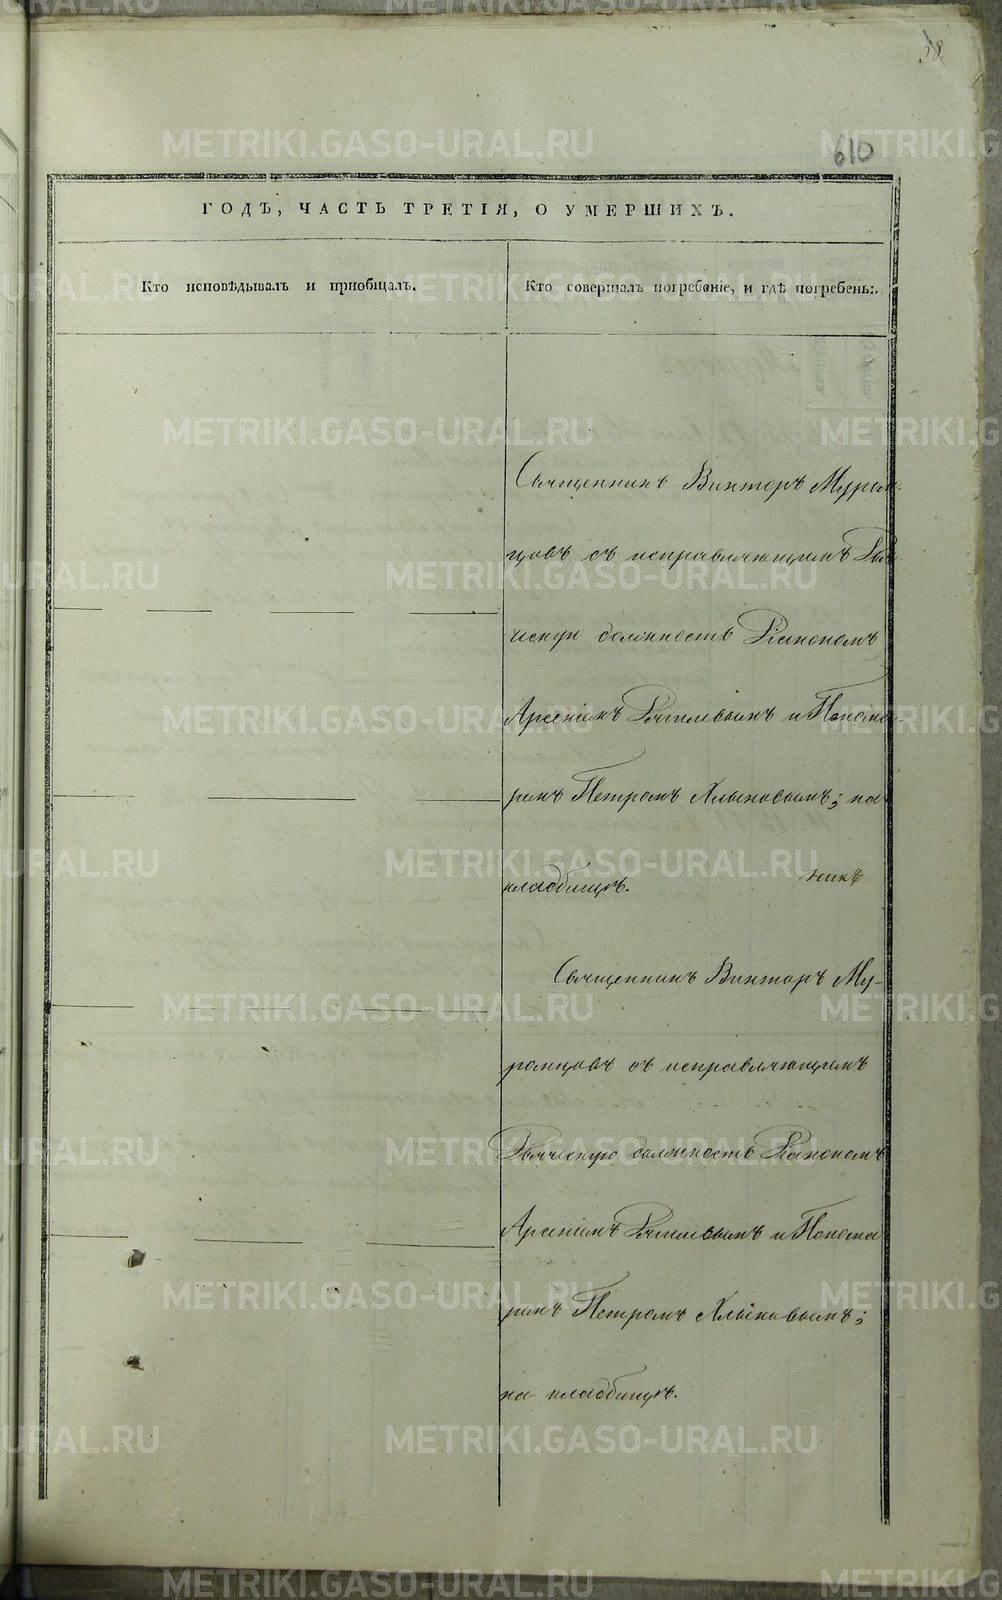 58.
610
ГОДЪ, ЧАСТЬ ТРЕТІЯ, О УМЕРШИХЪ.
Кто исповѣдывалъ и пріобщалъ.
Кто совершалъ погребеніе, и гдѣ погребены.
Священникъ Викторъ Муром-
цовъ съ исправляющимъ Дья
ческую должность Діакономъ
Арсеніемъ и Понома-
ремъ Петромъ Хлыновымъ; на
кладбищѣ.
Священникъ Викторъ Му-
ромцовъ съ исправляющимъ
Дьяческую должность Діакономъ
Арсеніемъ и Понома
ремъ Петромъ Хлыновымъ;
на кладбищѣ.
METRIKI.GASO-URAL.RU